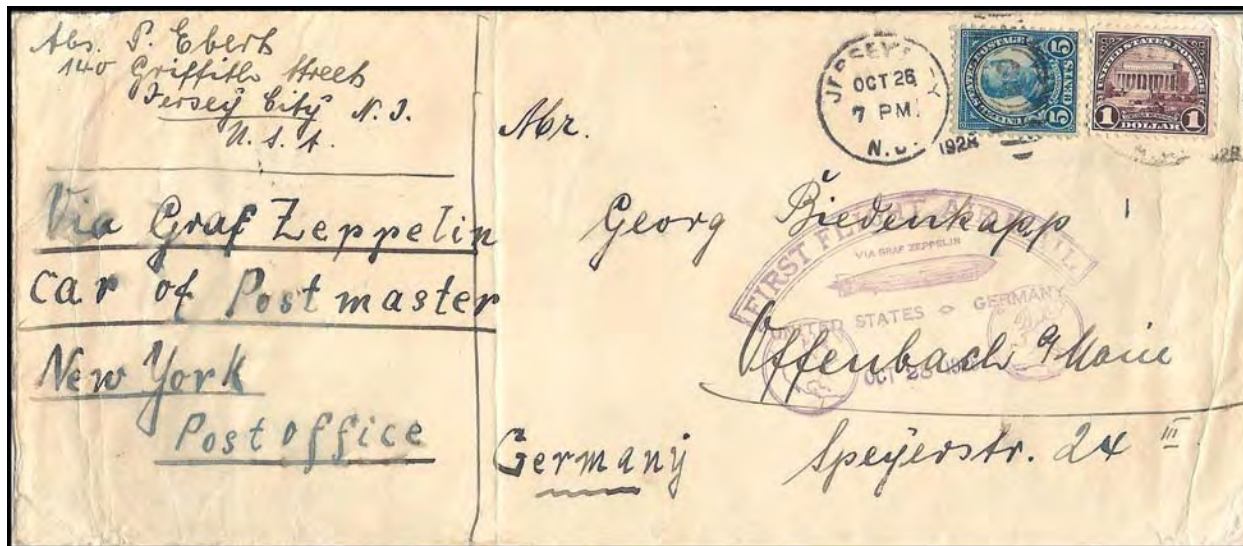 Abs. P. Ebert
140 Griffith Street
Jersey City N. J.
U. S. A.
Via Graf Zeppelin
car of Postmaster
New York
Post office
OCT 26
7 PM.
N.J.
1928
5 CENTS 5
UNITED STATES POSTAGE
1 DOLLAR 1
Abr.
Georg Biedenkapp
FIRST FLIGHT AIR MAIL
VIA GRAF ZEPPELIN
UNITED STATES GERMANY
OCT 28 1928
Offenbach a/Main
Speÿerstr. 24 III
Germanÿ